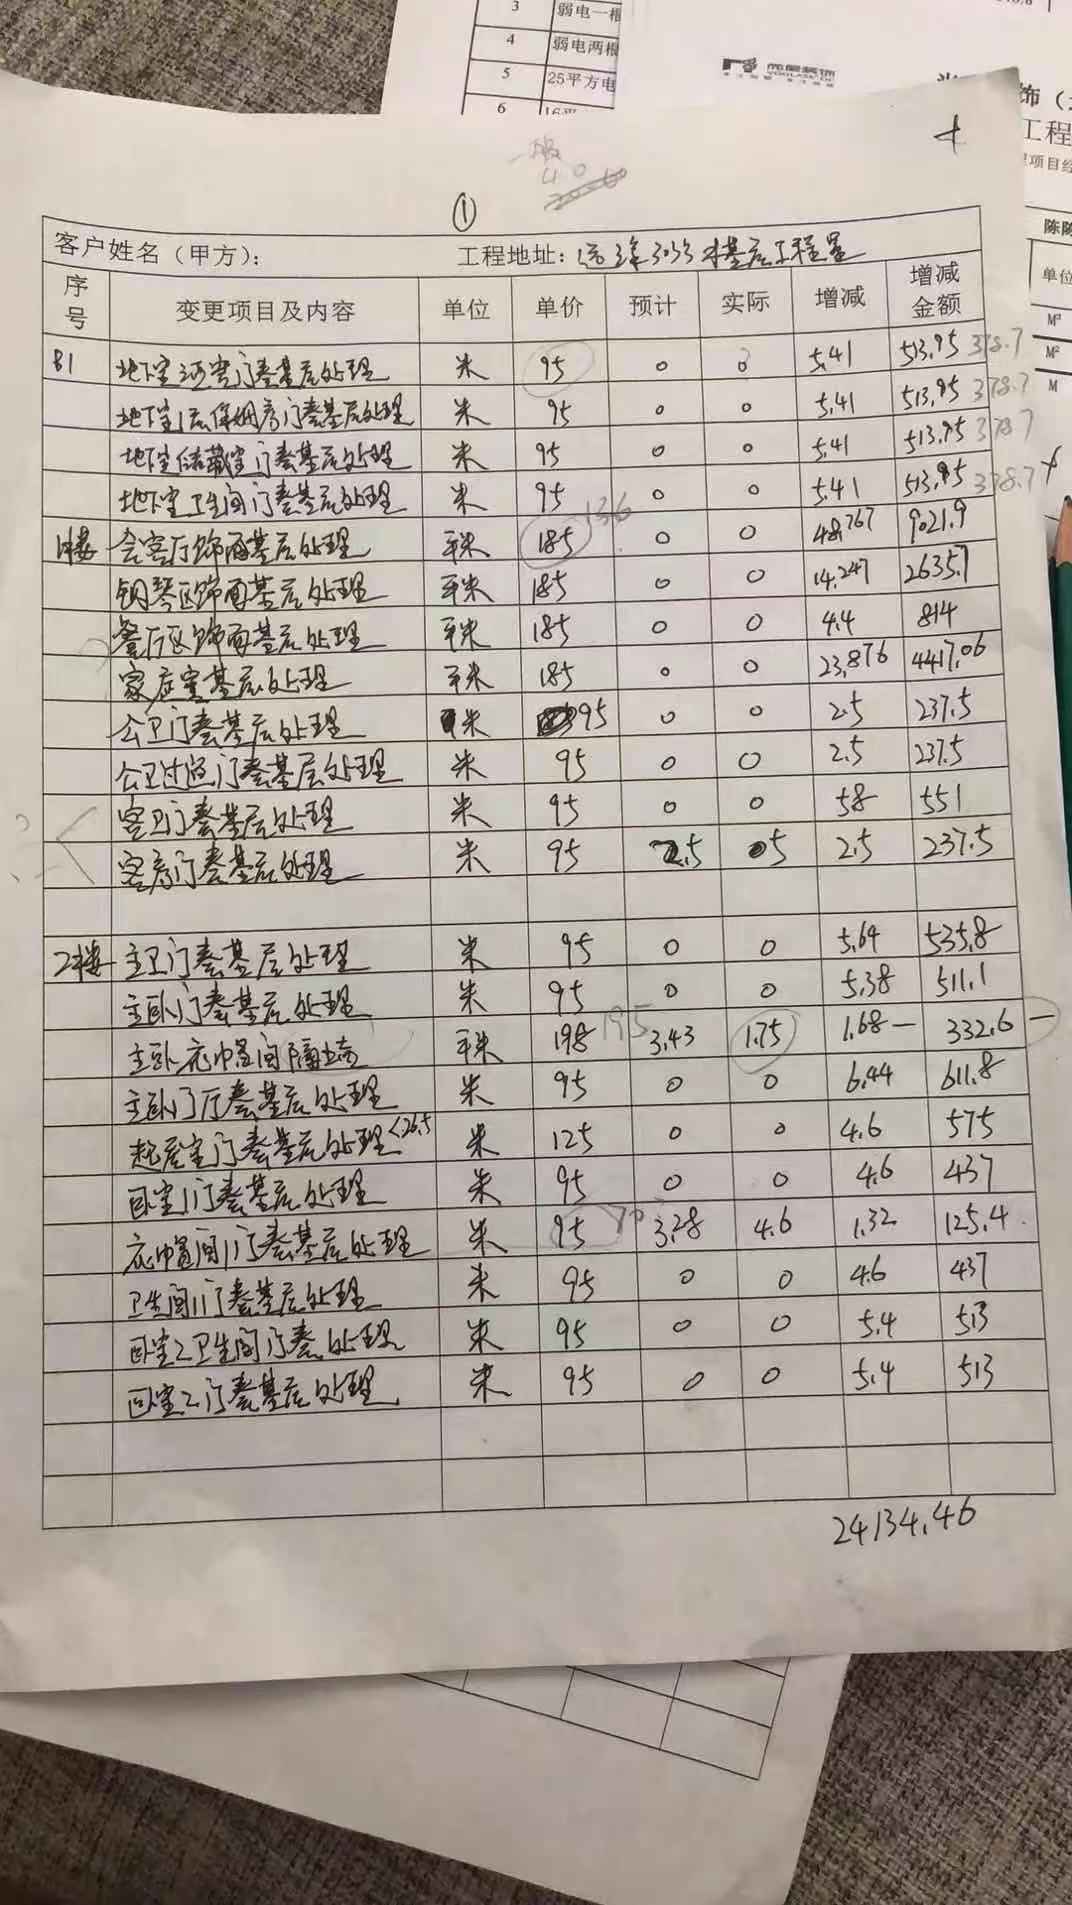 3 弱电一根
4 弱电两根
5 25平方电
6
饰（
工程
项目经
陈陈
单位
M²
M²
M
40
①
客户姓名（甲方）： 工程地址： 基层工程量
序号 变更项目及内容 单位 单价 预计 实际 增减 增减金额
B1 地下室酒窖门套基层处理 米 95 0 0 5.41 513.95 378.7
地下室保姆房门套基层处理 米 95 0 0 5.41 513.95 378.7
地下室储藏室门套基层处理 米 95 0 0 5.41 513.95 378.7
地下室卫生间门套基层处理 米 95 0 0 5.41 513.95 378.7
1楼 会客厅饰面基层处理 平米 185 136 0 0 48.767 9021.9
钢琴区饰面基层处理 平米 185 0 0 14.247 2635.7
餐厅区饰面基层处理 平米 185 0 0 4.4 814
家庭室基层处理 平米 185 0 0 23.876 4417.06
公卫门套基层处理 米 95 0 0 2.5 237.5
公卫过道门套基层处理 米 95 0 0 2.5 237.5
客卫门套基层处理 米 95 0 0 58 551
客房门套基层处理 米 95 2.5 5 2.5 237.5
2楼 主卫门套基层处理 米 95 0 0 5.64 535.8
主卧门套基层处理 米 95 0 0 5.38 511.1
主卧衣帽间隔墙 平米 198 195 3.43 1.75 1.68- 332.6-
主卧门厅套基层处理 米 95 0 0 6.44 611.8
起居室门套基层处理<26.5 米 125 0 0 4.6 575
卧室1门套基层处理 米 95 0 0 4.6 437
衣帽间1门套基层处理 米 95 3.28 4.6 1.32 125.4
卫生间1门套基层处理 米 95 0 0 4.6 437
卧室2卫生间门套处理 米 95 0 0 5.4 513
卧室2门套基层处理 米 95 0 0 5.4 513
24134.46